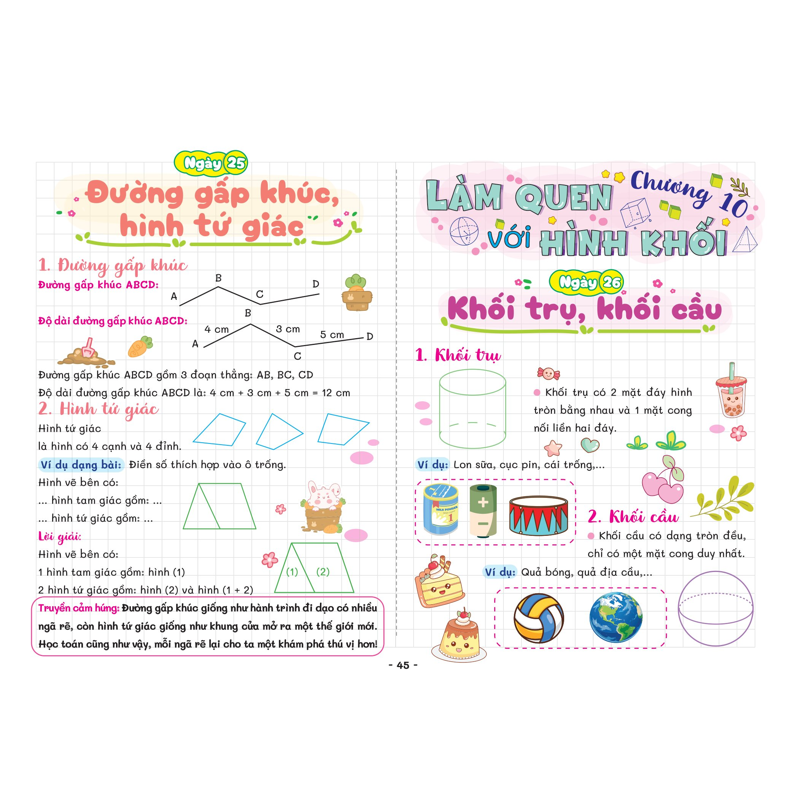 Ngày 25
Đường gấp khúc,
hình tứ giác
1. Đường gấp khúc
Đường gấp khúc ABCD:
A
B
C
D
Độ dài đường gấp khúc ABCD:
A
4 cm
B
3 cm
C
5 cm
D
Đường gấp khúc ABCD gồm 3 đoạn thẳng: AB, BC, CD
Độ dài đường gấp khúc ABCD là: 4 cm + 3 cm + 5 cm = 12 cm
2. Hình tứ giác
Hình tứ giác
là hình có 4 cạnh và 4 đỉnh.
Ví dụ dạng bài: Điền số thích hợp vào ô trống.
Hình vẽ bên có:
... hình tam giác gồm: ...
... hình tứ giác gồm: ...
Lời giải:
Hình vẽ bên có:
1 hình tam giác gồm: hình (1)
2 hình tứ giác gồm: hình (2) và hình (1 + 2)
(1)
(2)
Truyền cảm hứng: Đường gấp khúc giống như hành trình đi dạo có nhiều
ngã rẽ, còn hình tứ giác giống như khung cửa mở ra một thế giới mới.
Học toán cũng như vậy, mỗi ngã rẽ lại cho ta một khám phá thú vị hơn!
Chương 10
LÀM QUEN
VỚI HÌNH KHỐI
Ngày 26
Khối trụ, khối cầu
1. Khối trụ
Khối trụ có 2 mặt đáy hình
tròn bằng nhau và 1 mặt cong
nối liền hai đáy.
Ví dụ: Lon sữa, cục pin, cái trống,...
2. Khối cầu
Khối cầu có dạng tròn đều,
chỉ có một mặt cong duy nhất.
Ví dụ: Quả bóng, quả địa cầu,...
- 45 -